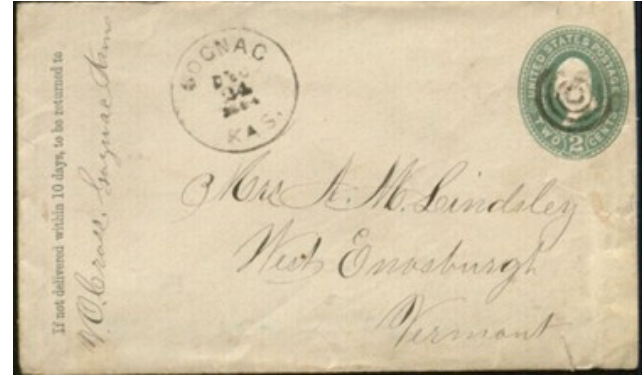 If not delivered within 10 days, to be returned to
Cognac Kans
COGNAC
DEC
24
KAS.
UNITED STATES POSTAGE
TWO 2 CENTS
A. M. Lindsley
West Enosburgh
Vermont